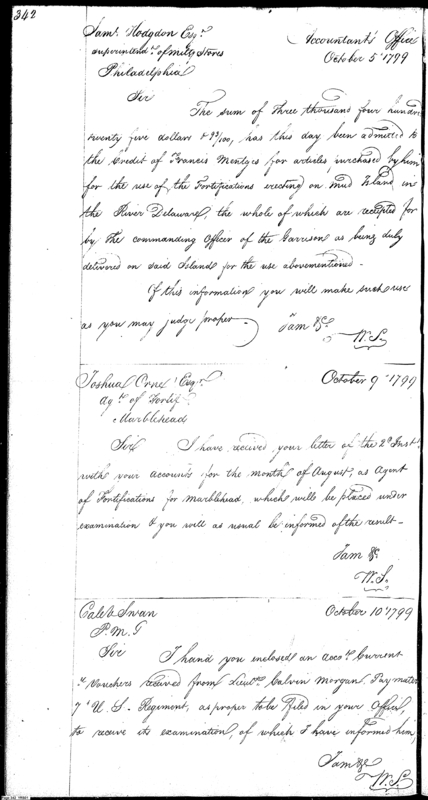 342
Saml. Hodgdon Esqr.
Superintendt. of Milty Stores
Philadelphia
Accountant's Office
October 5th 1799
Sir
The sum of three thousand four hundred
twenty five dollars & 93/100, has this day been admitted to
the Credit of Francis Mentges for articles, purchased by him
for the use of the Fortifications erecting on Mud Island in
the River Delaware, the whole of which are receipted for
by the commanding Officer of the Garrison as being duly
delivered on said Island for the use abovementioned.
Of this information you will make such use
as you may judge proper.
I am &c.
W. S.
Joshua Orne Esqr.
Agt. of Fortif.
Marblehead
October 9th 1799
Sir I have received your letter of the 2d Inst.
with your accounts for the month of August, as Agent
of Fortifications for Marblehead, which will be placed under
examination & you will as usual be informed of the result.
I am &c.
W. S.
Caleb Swan
P. M. G
October 10th 1799
Sir I hand you enclosed an accot. Current
& Vouchers received from Lieutt. Calvin Morgan, Paymaster
7th U. S. Regiment, as proper to be filed in your Office,
to receive its examination, of which I have informed him,
I am &c
W. S.